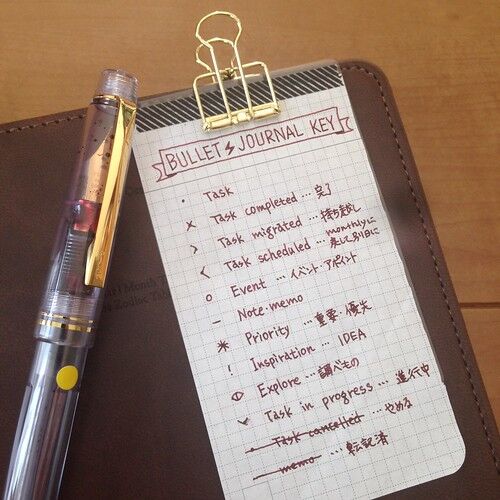 BULLET⚡JOURNAL KEY
• Task
× Task completed … 完了
> Task migrated … 持ち越し
< Task scheduled … monthlyに差して別日に
○ Event … イベント・アポイント
— Note・memo
* Priority … 重要・優先
! Inspiration … IDEA
Explore … 調べもの
✓ Task in progress … 進行中
Task cancelled … やめる
memo … 転記済
Month
Zodiac